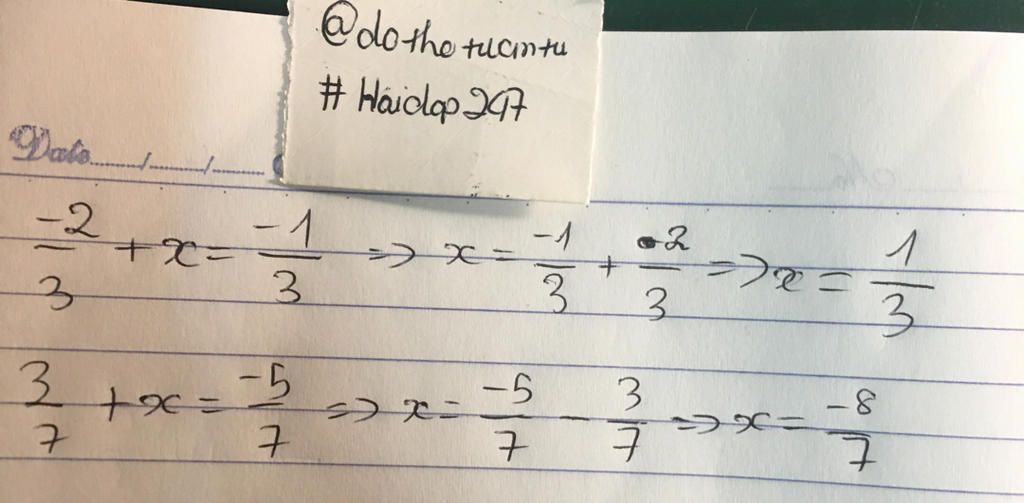 @dothetuantu
# Hoidap247
Date...../...../.....
-2/3 + x = -1/3 => x = -1/3 + 2/3 => x = 1/3
3/7 + x = -5/7 => x = -5/7 - 3/7 => x = -8/7